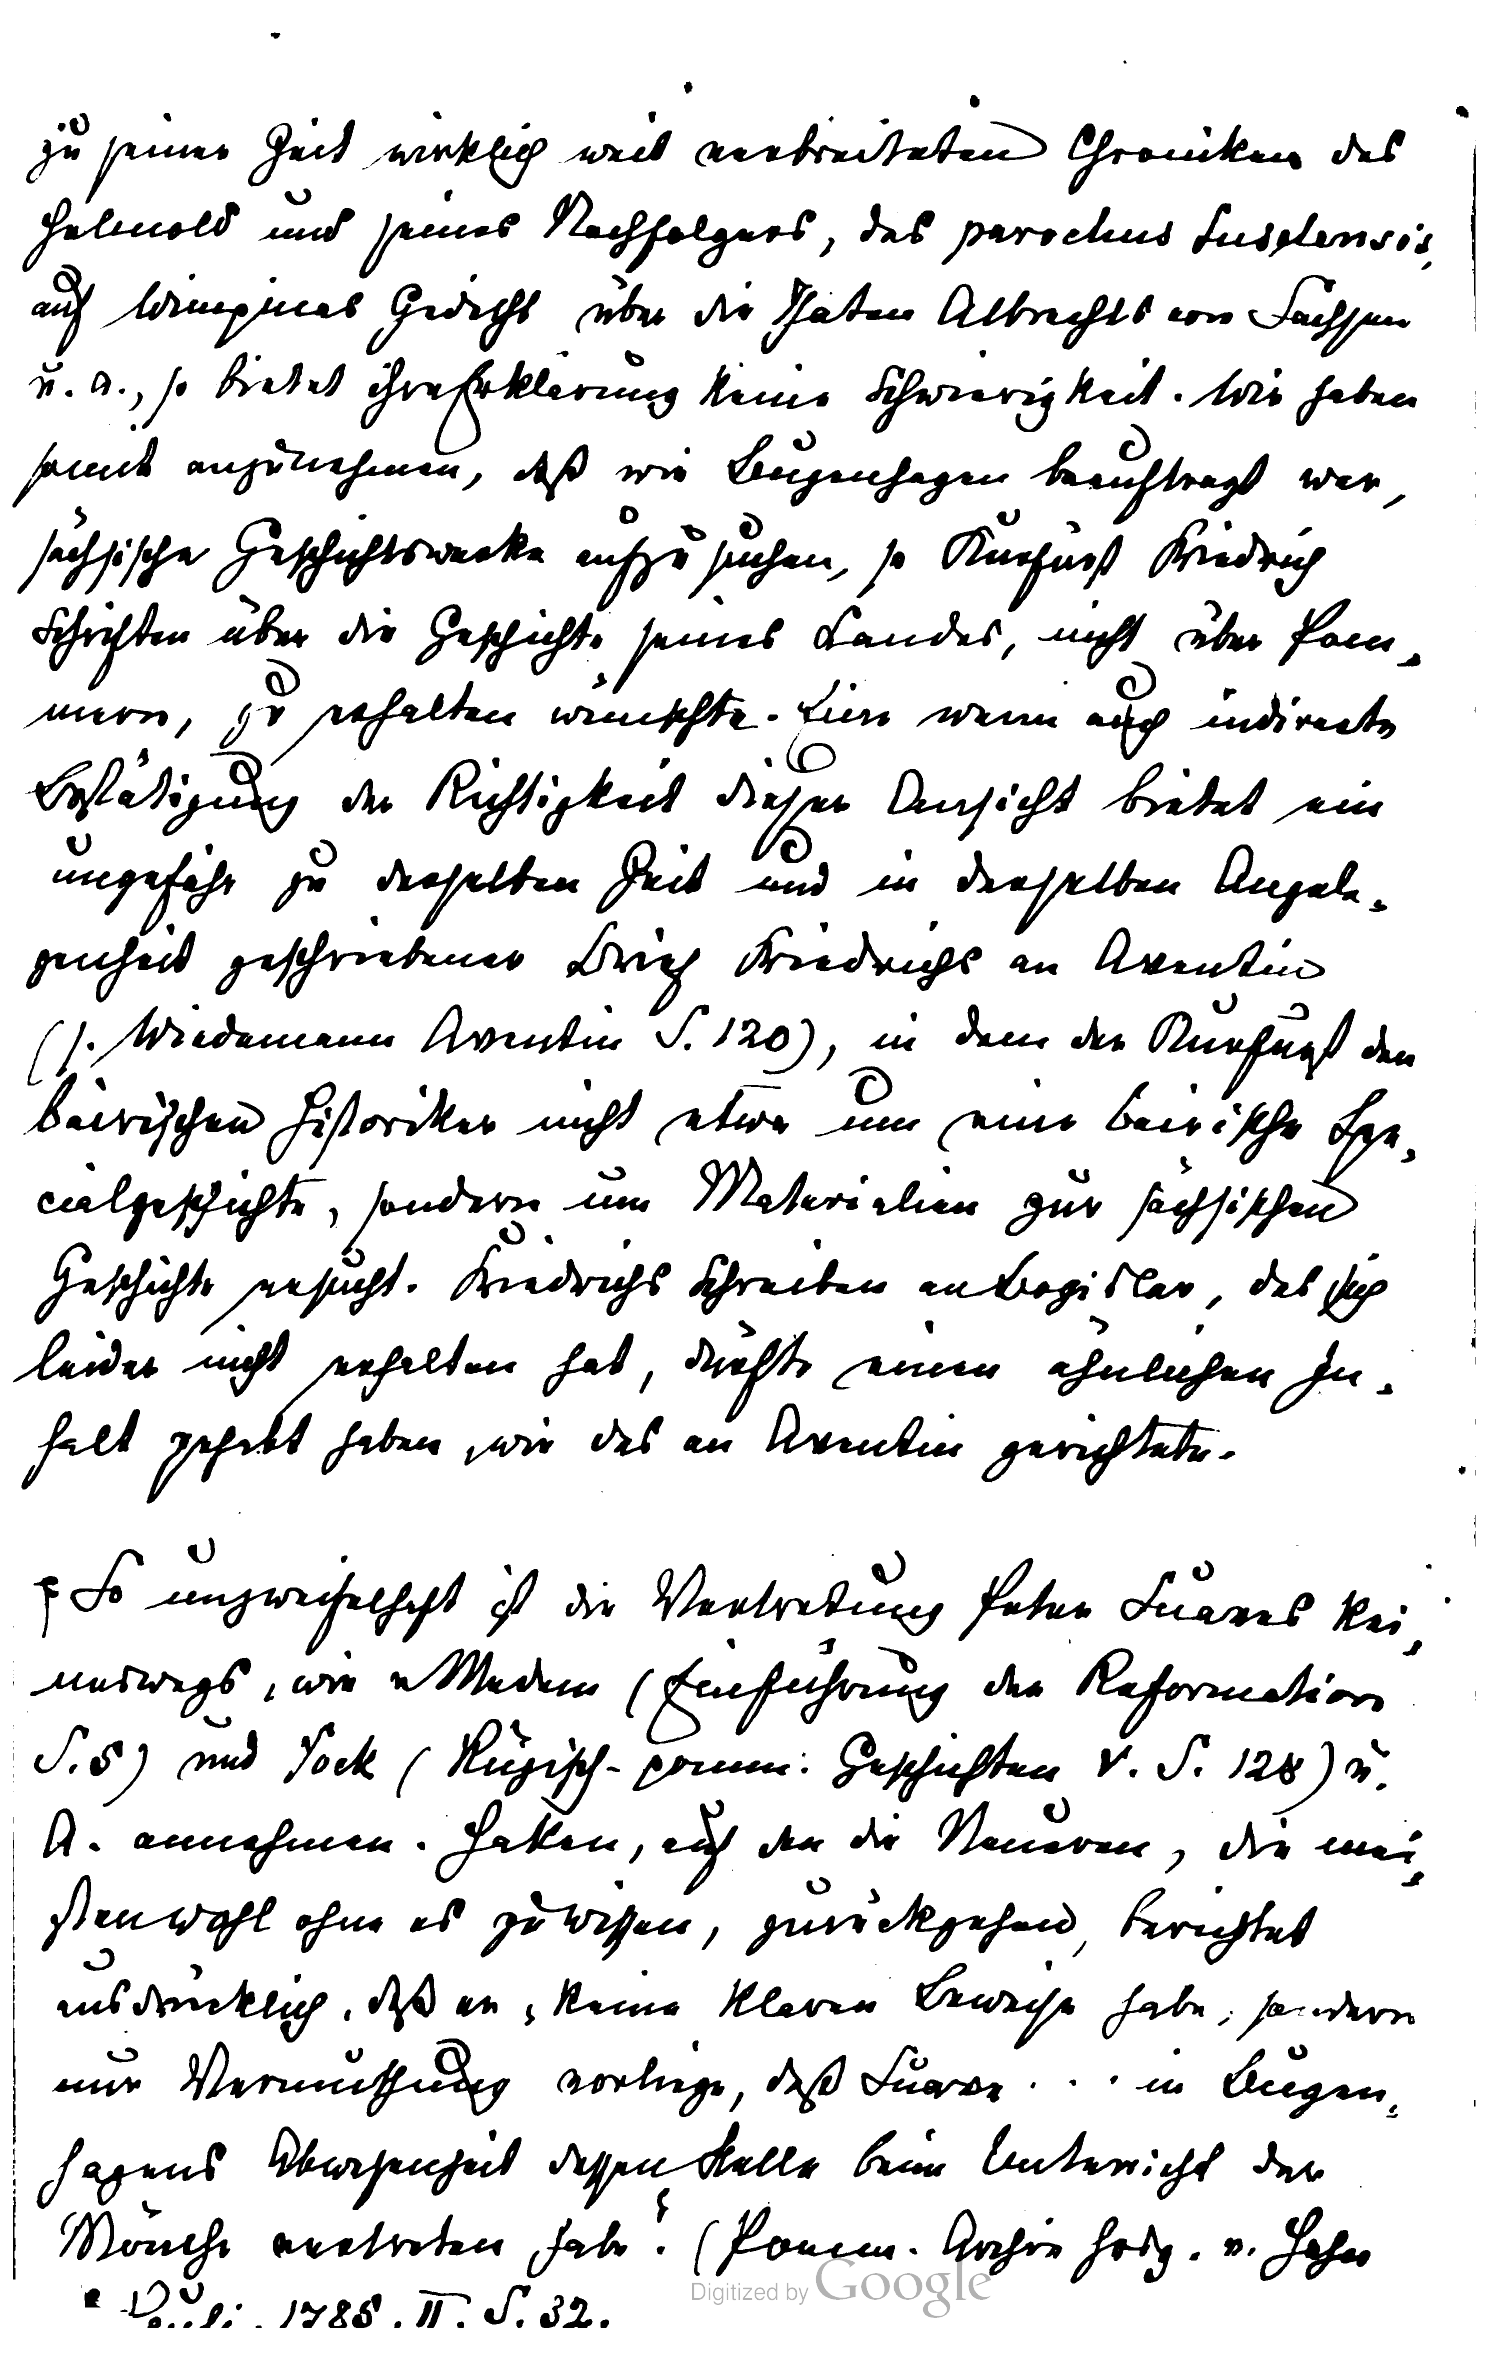 zu seiner Zeit wirklich weit verbreiteten Chroniken des
Helmold und seines Nachfolgers, des parochus Suselensis,
auf Wimpinas Gedicht über die Thaten Albrechts von Sachsen
u. a., so bietet ihre Erklärung keine Schwierigkeit. Wir haben
somit anzunehmen, daß wie Bugenhagen beauftragt war,
sächsische Geschichtswerke aufzusuchen, so Kurfürst Friedrich
Schriften über die Geschichte seines Landes, nicht über Pom-
mern, zu erhalten wünschte. Eine wenn auch indirecte
Bestätigung der Richtigkeit dieser Ansicht bietet ein
ungefähr zu derselben Zeit und in derselben Angele-
genheit geschriebener Brief Friedrichs an Aventin
(s. Wiedemann Aventin S. 120), in dem der Kurfürst den
bairischen Historiker nicht etwa um eine bairische Spe-
cialgeschichte, sondern um Materialien zur sächsischen
Geschichte ersucht. Friedrichs Schreiben an Bogislav, das sich
leider nicht erhalten hat, dürfte einen ähnlichen In-
halt gehabt haben, wie das an Aventin gerichtete.
So unzweifelhaft ist die Vertretung Peter Suaves kei-
neswegs, wie v Medem (Einführung der Reformation
S. 5) und Fock (Rügisch-pomm. Geschichten V. S. 128) u.
A. annehmen. Haken, auf den die Neueren, die mei-
sten wohl ohne es zu wissen, zurückgehen, berichtet
ausdrücklich, daß er „keine klaren Beweise habe, sondern
nur Vermuthung vorliege, daß Suave . . . in Bugen-
hagens Abwesenheit dessen Stelle beim Unterricht der
Mönche vertreten habe". (Pomm. Archiv hrsg. v. Hahn
u Pauli. 1785. II. S. 32.
Digitized by Google